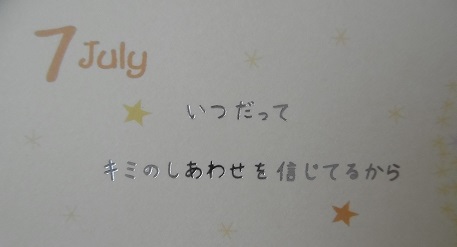 7 July
いつだって
キミのしあわせを信じてるから